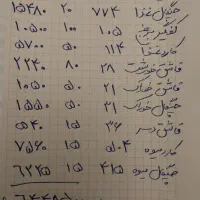 چنگال غذا ۷۷۴ ۲۰ ۱۵۴۸۰
کفگیر ۱۰۵ ۱۰۰ ۱۰۵۰۰
کارد غذا ۱۱۴ ۵۰ ۵۷۰۰
قاشق خورشت ۲۸ ۸۰ ۲۲۴۰
قاشق خوراک ۲۱ ۵۰ ۱۰۵۰
چنگال خوراک ۳۱ ۵۰ ۱۵۵۰
قاشق دسر ۳۶ ۱۵ ۵۴۰
کارد میوه ۵۰۴ ۱۵ ۷۵۶۰
چنگال میوه ۴۱۵ ۱۵ ۶۲۲۵